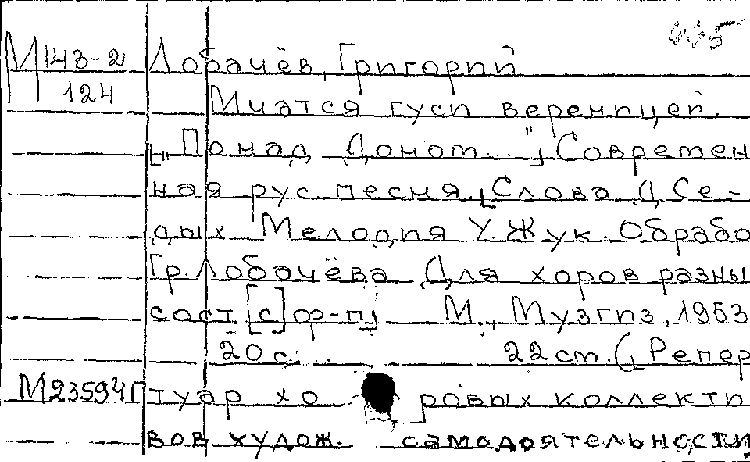 005
М143-2 Лобачёв, Григорий
124 Мчатся гуси вереницей.
["Понад Доном..."] Современ
ная рус. песня. [Слова Д. Се-
дых Мелодия У. Жук. Обрабо
Гр. Лобачёва Для хоров разны
сост. [с] ф-п] М., Музгиз, 1953
20 с. 22 см. (Репер
М23594Г туар хо ровых коллекти
вов худож. самодоятельности